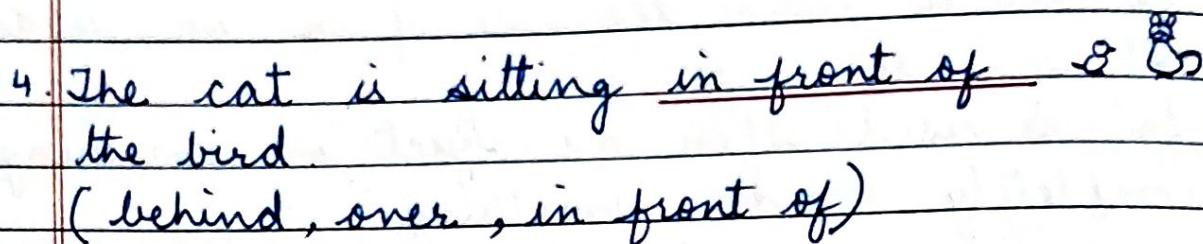 4. The cat is sitting in front of
the bird.
(behind, over, in front of)